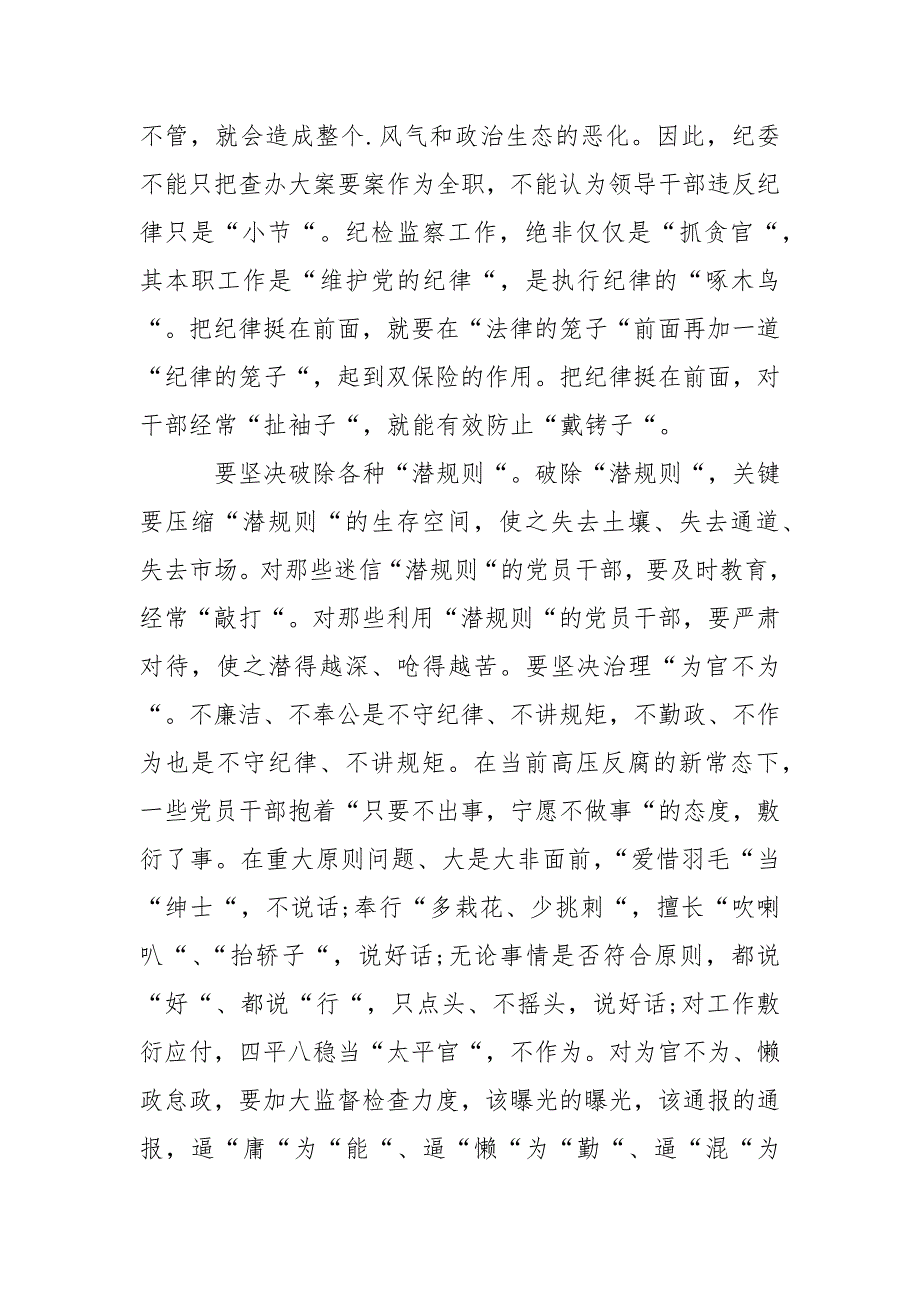 不管，就会造成整个.风气和政治生态的恶化。因此，纪委
不能只把查办大案要案作为全职，不能认为领导干部违反纪
律只是“小节“。纪检监察工作，绝非仅仅是“抓贪官“，
其本职工作是“维护党的纪律“，是执行纪律的“啄木鸟
“。把纪律挺在前面，就要在“法律的笼子“前面再加一道
“纪律的笼子“，起到双保险的作用。把纪律挺在前面，对
干部经常“扯袖子“，就能有效防止“戴铐子“。
要坚决破除各种“潜规则“。破除“潜规则“，关键
要压缩“潜规则“的生存空间，使之失去土壤、失去通道、
失去市场。对那些迷信“潜规则“的党员干部，要及时教育，
经常“敲打“。对那些利用“潜规则“的党员干部，要严肃
对待，使之潜得越深、呛得越苦。要坚决治理“为官不为
“。不廉洁、不奉公是不守纪律、不讲规矩，不勤政、不作
为也是不守纪律、不讲规矩。在当前高压反腐的新常态下，
一些党员干部抱着“只要不出事，宁愿不做事“的态度，敷
衍了事。在重大原则问题、大是大非面前，“爱惜羽毛“当
“绅士“，不说话;奉行“多栽花、少挑刺“，擅长“吹喇
叭“、“抬轿子“，说好话;无论事情是否符合原则，都说
“好“、都说“行“，只点头、不摇头，说好话;对工作敷
衍应付，四平八稳当“太平官“，不作为。对为官不为、懒
政怠政，要加大监督检查力度，该曝光的曝光，该通报的通
报，逼“庸“为“能“、逼“懒“为“勤“、逼“混“为